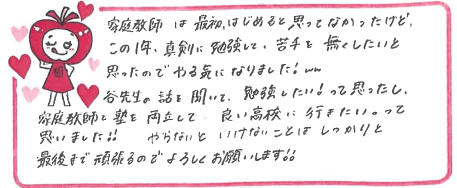 家庭教師は最初、はじめると思ってなかったけど、
この1年、真剣に勉強して、苦手を無くしたいと
思ったのでやる気になりました!ww
谷先生の話を聞いて、勉強したい!って思ったし、
家庭教師と塾を両立して、良い高校に行きたい。って
思いました!! やらないといけないことはしっかりと
最後まで頑張るのでよろしくお願いします!!